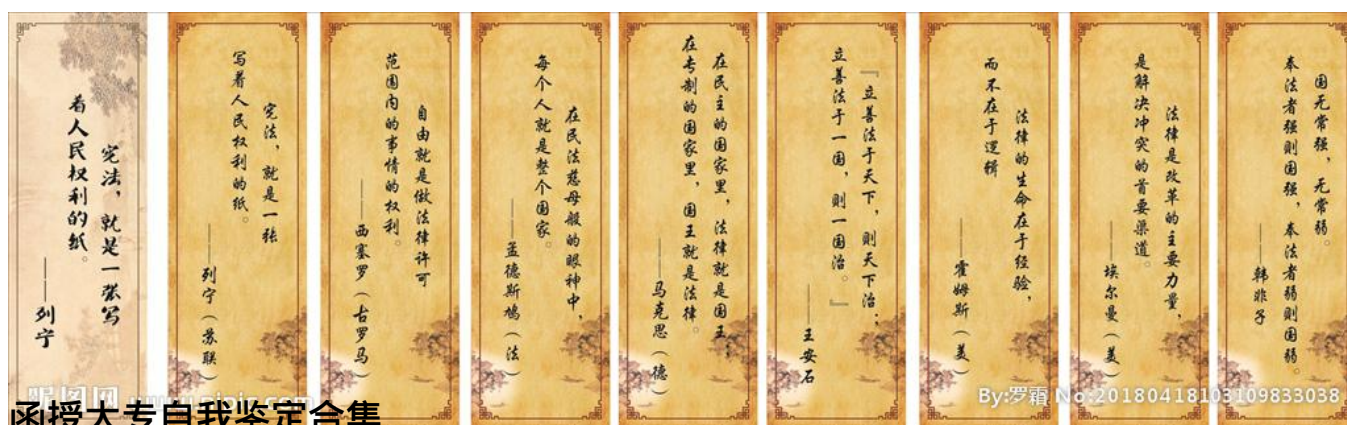 宪法，就是一张写
着人民权利的纸。
——列宁
宪法，就是一张
写着人民权利的纸。
——列宁（苏联）
自由就是做法律许可
范围内的事情的权利。
——西塞罗（古罗马）
在民法慈母般的眼神中，
每个人就是整个国家。
——孟德斯鸠（法）
在民主的国家里，法律就是国王；
在专制的国家里，国王就是法律。
——马克思（德）
『立善法于天下，则天下治；
立善法于一国，则一国治。』
——王安石
法律的生命在于经验，
而不在于逻辑
——霍姆斯（美）
法律是改革的主要力量，
是解决冲突的首要渠道。
——埃尔曼（美）
国无常强，无常弱。
奉法者强则国强，奉法者弱则国弱。
——韩非子
昵图网 www.nipic.com
By:罗霜 No:20180418103109833038
函授大专自我鉴定合集